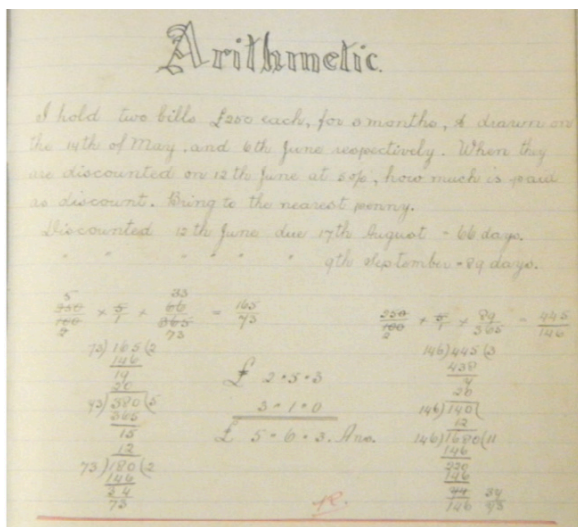 Arithmetic.
I hold two bills £250 each, for 3 months, & drawn on
the 14th of May, and 6th June respectively. When they
are discounted on 12th June at 5%, how much is paid
as discount. Bring to the nearest penny.
Discounted 12th June due 17th August = 66 days.
" " " " " 9th September = 89 days.
5 33
250/100 × 5/1 × 66/365 = 165/73
2 73
250/100 × 5/1 × 89/365 = 445/146
2
73)165(2
146
19
20
73)380(5
365
15
12
73)180(2
146
34
73
£ 2 " 5 " 3
3 " 1 " 0
£ 5 " 6 " 3. Ans.
146)445(3
438
7
20
146)140(
12
146)1680(11
146
220
146
74
146